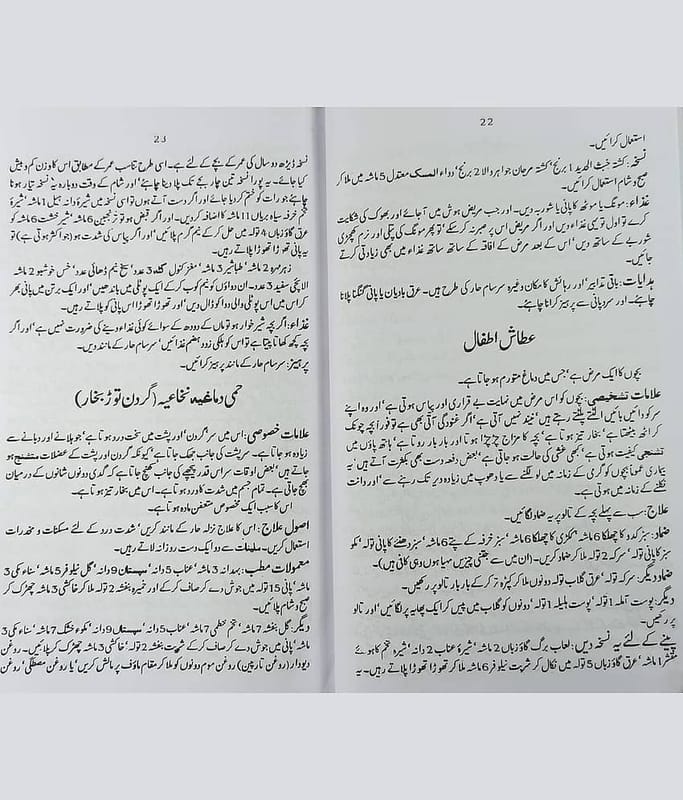 22
استعمال کرائیں۔
نسخہ: کشتہ خبث الحدید 1 برنج' کشتہ مرجان جواہر والا 2 برنج' دواء المسک معتدل 5 ماشہ میں ملا کر
صبح و شام استعمال کرائیں۔
غذاء: مونگ یا موٹھ کا پانی یا شوربہ دیں۔ اور جب مریض ہوش میں آجائے اور بھوک کی شکایت
کرے تو اول تو یہی غذاء دیں اور اگر مریض اس پر صبر نہ کر سکے' تو پھر مونگ کی پتلی اور نرم کھچڑی
شوربے کے ساتھ دیں' اس کے بعد مرض کے افاقہ کے ساتھ ساتھ غذاء میں بھی زیادتی کرتے
جائیں۔
ہدایات: باقی تدابیر' اور رہائش کا مکان وغیرہ سرسام حار کی طرح ہیں۔ عرق بادیان یا پانی گنگنا پلانا
چاہئے۔ اور سرد پانی سے پرہیز کرانا چاہئے۔
عطاش اطفال
بچوں کا ایک مرض ہے' جس میں دماغ متورم ہو جاتا ہے۔
علامات تشخیصی: بچوں کو اس مرض میں نہایت بے قراری اور پیاس ہوتی ہے' اور وہ اپنے
سر کو دائیں بائیں الٹتے پلٹتے رہتے ہیں' نیند نہیں آتی ہے' اگر غنودگی آتی بھی ہے تو فوراً بچہ چونک
کر اٹھ بیٹھتا ہے' بخار تیز ہوتا ہے' بچہ کا مزاج چڑچڑا ہوتا اور بار بار روتا ہے' ہاتھ پاؤں میں
تشنجی کیفیت ہوتی ہے' کبھی غشی کی حالت ہو جاتی ہے' بعض دفعہ دست بھی بکثرت آتے ہیں' یہ
بیماری عموماً بچوں کو گرمی کے زمانہ میں لو لگنے سے یا دھوپ میں زیادہ دیر تک رہنے سے' اور دانت
نکلنے کے زمانہ میں ہوتی ہے۔
علاج: سب سے پہلے بچہ کے تالو پر یہ ضماد لگائیں۔
ضماد: سبز کدو کا چھلکا 6 ماشہ' ککڑی کا چھلکا 6 ماشہ' سبز خرفہ کے پتے 6 ماشہ' سبز دھنئے کا پانی تولہ' مکو
سبز کا پانی تولہ' سرکہ 2 تولہ ملا کر ضماد کریں۔ (ان میں سے جتنی چیزیں مہیا ہوں وہی کافی ہیں)۔
ضماد دیگر: سرکہ تولہ' عرق گلاب تولہ دونوں ملا کر کپڑہ تر کرکے بار بار تالو پر رکھیں۔
دیگر: پوست آملہ 1 تولہ' پوست ہلیلہ 1 تولہ' دونوں کو گلاب میں پیس کر ایک پھایہ پر لگائیں' اور تالو
پر رکھیں۔
پینے کے لئے یہ نسخہ دیں: لعاب برگ گاؤ زباں 2 ماشہ' شیرۂ عناب 2 دانہ' شیرہ تخم کاہوئے
مقشر 1 ماشہ' عرق گاؤ زباں 5 تولہ میں نکال کر شربت نیلوفر 6 ماشہ ملا کر تھوڑا تھوڑا پلاتے رہیں۔ یہ
23
نسخہ ڈیڑھ دو سال کی عمر کے بچے کے لئے ہے۔ اسی طرح تناسب عمر کے مطابق اس کا وزن کم و بیش
کیا جائے۔ یہ پورا نسخہ تین چار بجے تک پلا دینا چاہئے' اور شام کے وقت دوبارہ یہ نسخہ تیار ہونا
چاہئے' جو رات کو ختم کر دیا جائے' اور اگر دست آتے ہوں تو اسی نسخہ میں شیرۂ دانہ ہیل 1 ماشہ' شیرۂ
تخم خرفہ سیاہ بریاں 11 ماشہ کا اضافہ کر دیں۔ اور اگر قبض ہو تو ترنجبین 6 ماشہ' شیر خشت 6 ماشہ کو
عرق گاؤ زباں 4 تولہ میں حل کر کے نیم گرم پلائیں' اور اگر پیاس کی شدت ہو (جو اکثر ہوتی ہے) تو
یہ پانی تھوڑا تھوڑا پلاتے رہیں۔
زہر مہرہ 2 ماشہ' طباشیر 3 ماشہ' مغز کنول گٹہ 3 عدد' سیخ نیم ڈھائی عدد' خس خوشبو 2 ماشہ
الائچی سفید 3 عدد۔ ان دواؤں کو نیم کوب کر کے ایک پوٹلی میں باندھیں' اور ایک برتن میں پانی بھر
کر اس میں اس پوٹلی والی دوا کو ڈال دیں' اور تھوڑا تھوڑا اس پانی کو پلاتے رہیں۔
غذاء: اگر بچہ شیر خوار ہو تو ماں کے دودھ کے سوائے کوئی غذاء دینے کی ضرورت نہیں ہے' اور اگر
بچہ کچھ کھاتا پیتا ہے تو اس کو ہلکی زود ہضم غذائیں' سرسام حار کے مانند دیں۔
پرہیز: سرسام حار کے مانند پرہیز کرائیں۔
حمی دماغیہ نخاعیہ (گردن توڑ بخار)
علامات خصوصی: اس میں سر' گردن' اور پشت میں سخت درد ہوتا ہے' جو ہلانے اور دبانے سے
زیادہ ہو جاتا ہے۔ سر پشت کی جانب جھک جاتا ہے' کیونکہ گردن اور پشت کے عضلات متشنج ہو
جاتے ہیں' بعض اوقات سر اس قدر پیچھے کی جانب کھنچ جاتا ہے کہ گدی دونوں شانوں کے درمیان
پہنچ جاتی ہے۔ تمام جسم میں شدت کا درد ہوتا ہے۔ اس میں بخار تیز ہوتا ہے۔
اس کا سبب ایک مخصوص متعفن مادہ ہوتا ہے۔
اصول علاج: اس کا علاج نزلہ حار کے مانند کریں' شدت درد کے لئے مسکنات و مخدرات
استعمال کریں۔ ملینات سے دو ایک دست روزانہ لاتے رہیں۔
معمولات مطب: بہدانہ 3 ماشہ' عناب 5 دانہ' سپستاں 9 دانہ' گل نیلوفر 5 ماشہ' سناء مکی 3
ماشہ' پانی 15 تولہ میں جوش دے کر صاف کر کے اور خمیرہ بنفشہ 2 تولہ ملا کر خاکشی 3 ماشہ چھڑک کر
صبح و شام پلائیں۔
دیگر: گل بنفشہ 7 ماشہ' تخم خطمی 7 ماشہ' عناب 5 دانہ' سپستاں 9 دانہ' مکوء خشک 7 ماشہ' سناء مکی 3
ماشہ' پانی میں جوش دے کر صاف کر کے شربت بنفشہ 2 تولہ' خاکشی 3 ماشہ چھڑک کر پلائیں۔ روغن
دیودار (روغن تارپین) روغن موم دونوں کو ملا کر مقام ماؤف پر مالش کریں' یا روغن مصطگی' روغن